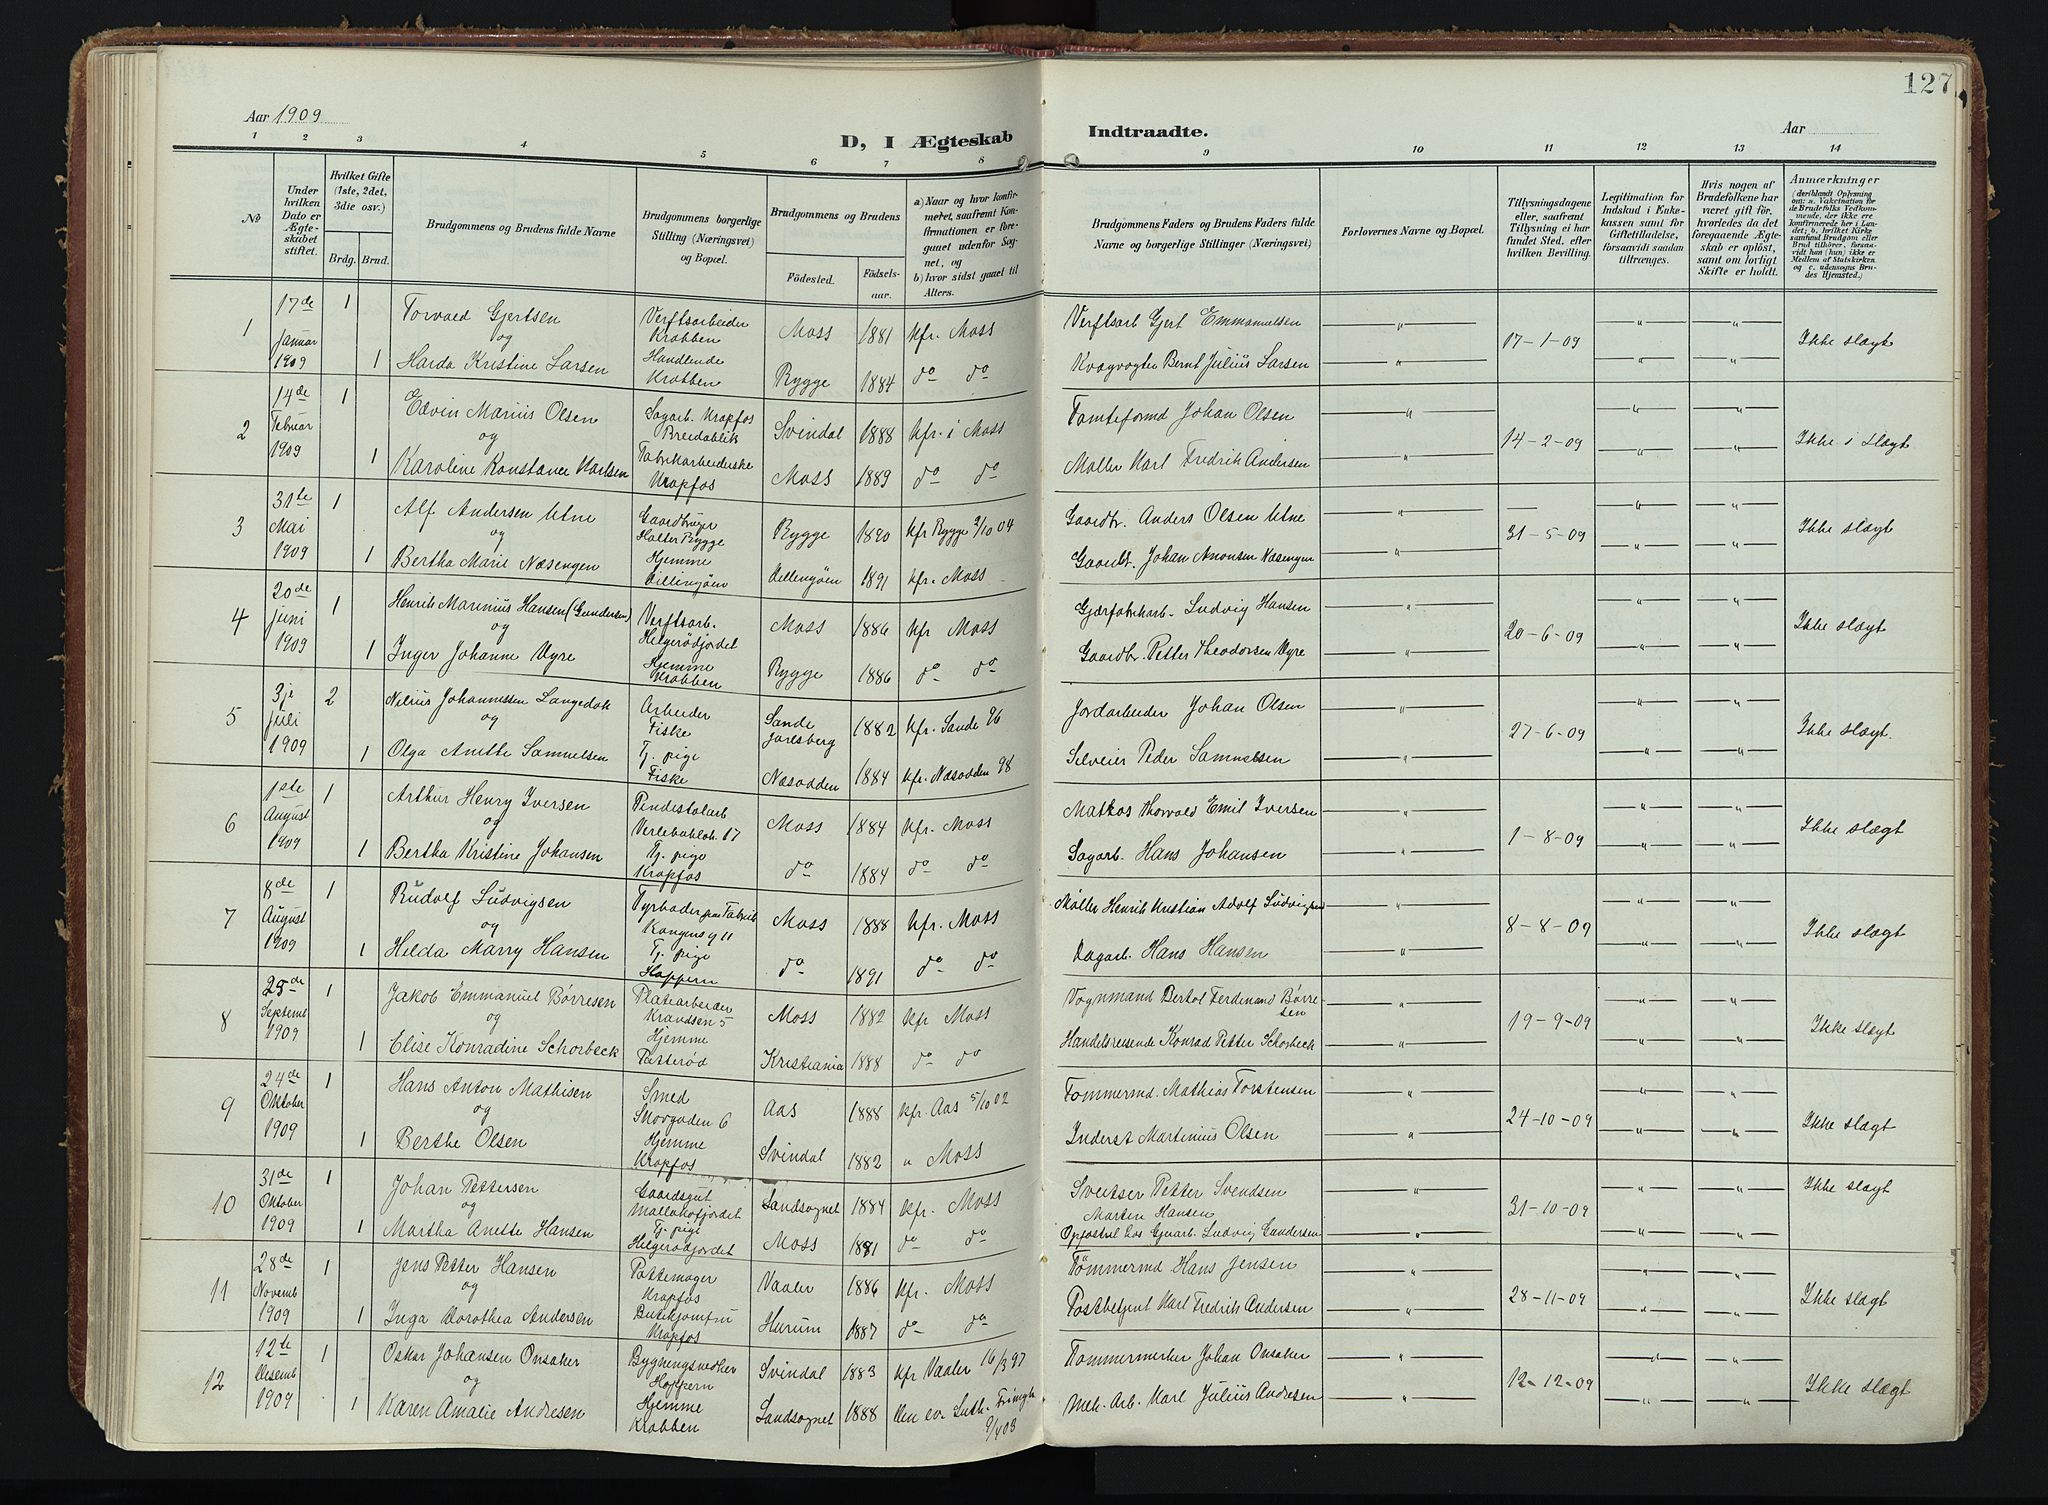 127
Aar 1909
D, I Ægteskab Indtraadte.
Aar
1 2 3 4 5 6 7 8 9 10 11 12 13 14
No
Under hvilken Dato er Ægteskabet stiftet.
Hvilket Gifte (1ste, 2det, 3die osv.)
Brdg. Brud.
Brudgommens og Brudens fulde Navne
Brudgommens borgerlige Stilling (Næringsvei) og Bopæl.
Brudgommens og Brudens
Födested.
Födselsaar.
a) Naar og hvor konfirmeret, saafremt Konfirmationen er foregaaet udenfor Sognet, og
b) hvor sidst gaaet til Alters.
Brudgommens Faders og Brudens Faders fulde Navne og borgerlige Stillinger (Næringsvei)
Forlovernes Navne og Bopæl.
Tillysningsdagene eller, saafremt Tillysning ei har fundet Sted, efter hvilken Bevilling.
Legitimation for Indskud i Enkekassen samt for Giftetilladelse, forsaavidt saadan tiltrænges.
Hvis nogen af Brudefolkene har været gift för, hvorledes da det foregaaende Ægteskab er oplöst, samt om lovligt Skifte er holdt.
Anmærkninger
(deriblandt Oplysning om: a. Vakcination for de Brudefolks Vedkommende, der ikke ere konfirmerede her i Landet; b. hvilket Kirkesamfund Brudgom eller Brud tilhörer, forsaavidt han (hun) ikke er Medlem af Statskirken og c. udensogns Brudes Hjemsted.)
1 17de Januar 1909 1 Torvald Gjertsen Verftsarbeider Krabben Moss 1881 kfr. Moss Verftsarb Gjert Emmanuelsen 17-1-09 Ikke slægt
og
1 Harda Kristine Larsen Handlende Krabben Rygge 1884 do do Kvægvogter Bernt Julius Larsen
2 14de Februar 1909 1 Edvin Marius Olsen Sagarb. Krapfos Breidablik Svindal 1888 kfr. i Moss Tomteformd Johan Olsen 14-2-09 Ikke i slægt
og
1 Karoline Konstance Karlsen Fabrikarbeiderske Krapfos Moss 1889 do do Møller Karl Fredrik Andersen
3 31te Mai 1909 1 Alf Andersen Utne Gaardbruger Halter Rygge Rygge 1890 kfr Rygge 2/10 04 Gaardbr. Anders Olsen Utne 31-5-09 Ikke slægt
og
1 Bertha Marie Næsengen Hjemme Dillingøen Dillingøen 1891 kfr. Moss Gaardbr. Johan Amonsen Næsengen
4 20de juni 1909 1 Henrik Marinius Hansen (Gundersen) Verftsarb. Helgerødjordet Moss 1886 kfr Moss Gjærfabrikarb. Ludvig Hansen 20-6-09 Ikke slægt
og
1 Inger Johanne Dyre Hjemme Krabben Rygge 1886 do do Gaardbr. Petter Theodorsen Dyre
5 3je juli 1909 2 Nilius Johannessen Langedok Arbeider Fiske Sande Jarlsberg 1882 kfr. Sande 96 Jordarbeider Johan Olsen 27-6-09 Ikke slægt.
og
1 Olga Anette Samuelsen Tj. pige Fiske Næsodden 1884 kfr. Næsodden 98 Selveier Peder Samuelsen
6 1ste August 1909 1 Arthur Henry Iversen Verlebakk. 17 Moss 1884 kfr. Moss Matros Thorvald Emil Iversen 1-8-09 Ikke slægt
og
1 Bertha Kristine Johansen Tj. pige Krapfos do 1884 do do Sagarb. Hans Johansen
7 8de August 1909 1 Rudolf Ludvigsen Fyrbøder Kongens g 11 Moss 1888 kfr. Moss Møller Henrik Kristian Adolf Ludvigsen 8-8-09 Ikke slægt
og
1 Hilda Marry Hansen Tj. pige Hoppern do 1891 do do Dagarb. Hans Hansen
8 25de Septemb 1909 1 Jakob Emmanuel Børresen Platearbeider Krandsen 5 Moss 1882 kfr Moss Vognmand Bertol Ferdinand Børresen 19-9-09 Ikke slægt
og
1 Elise Konradine Schorbeck Hjemme Patterød Kristiania 1888 do do Handelsreisende Konrad Petter Schorbeck
9 24de Oktober 1909 1 Hans Anton Mathisen Smed Skovgaden 6 Aas 1888 kfr. Aas 5/10 02 Tømmermd. Mathias Torstensen 24-10-09 Ikke slægt
og
1 Berthe Olsen Hjemme Krapfos Svindal 1882 " Moss Inderst Martinius Olsen
10 31de Oktober 1909 1 Johan Pettersen Gaardsgut Mallakofjordet Sandsognet 1884 kfr. Moss Sveitser Petter Svendsen 31-10-09 Ikke slægt
og
1 Martha Anette Hansen Tj. pige Helgerødjordet Moss 1881 do do Marten Hansen
Opfostret hos Gjærarb. Ludvig Gundersen
11 28de Novemb 1909 1 Jens Petter Hansen Pottemager Krapfos Vaaler 1886 kfr. Moss Tømmermd Hans Jensen 28-11-09 Ikke slægt
og
1 Inga Dorothea Andersen Butikjomfru Krapfos Hurum 1887 do do Postbetjent Karl Fredrik Andersen
12 12te Desemb 1909 1 Oskar Johansen Onsaker Bygningssnedker Hoppern Svindal 1883 kfr Vaaler 16/3 97 Tømmermerker Johan Onsaker 12-12-09 Ikke slægt
og
1 Karen Amalie Andresen Hjemme Krabben Sandsognet 1888 Den ev. Luth. Frimgh 9/4 03 Mek. Arb. Karl Julius Andresen